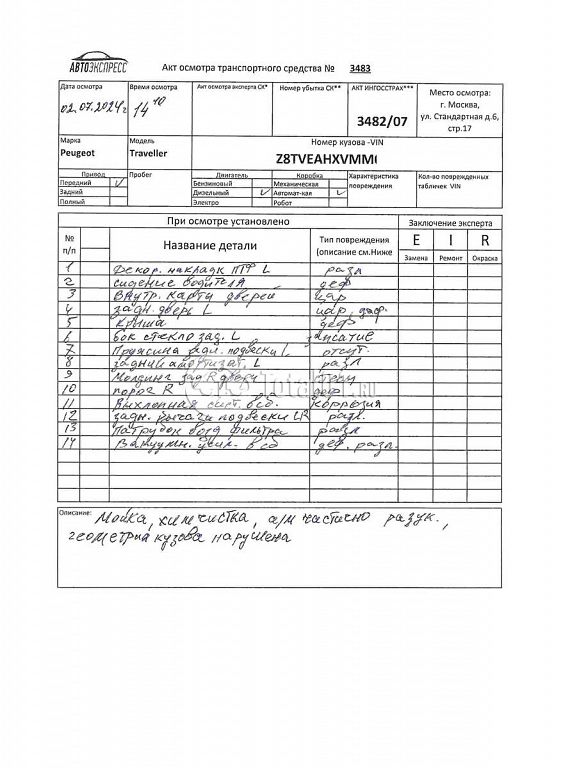 АВТОЭКСПРЕСС
Акт осмотра транспортного средства № 3483
Дата осмотра Время осмотра Акт осмотра эксперта СК* Номер убытка СК** АКТ ИНГОССТРАХ*** Место осмотра:
02.07.2024г 14 10 3482/07 г. Москва,
ул. Стандартная д.6,
стр.17
Марка Модель Номер кузова -VIN
Peugeot Traveller Z8TVEAHXVMM
Привод Пробег Двигатель Коробка Характеристика Кол-во поврежденных
Передний V Бензиновый Механическая повреждения табличек VIN
Задний Дизельный V Автомат-кая V
Полный Электро Робот
При осмотре установлено Заключение эксперта
№ Название детали Тип повреждения E I R
п/п (описание см.Ниже Замена Ремонт Окраска
1 Декор. накладк ПТФ L разл
2 сидение водителя деф
3 Внутр. карты дверей цар
4 задн. дверь L цар. деф.
5 Крыша деф
6 бок стекло зад. L
7 подвески L отсут.
8 задний амортизат. L разл
9 Молдинг зад R двери
10 порог R деф
11 Выхлопная сист. в сб. коррозия
12 задн. рычаги подвески LR разл.
13 Патрубок возд фильтра разл
14 Вакуумн. усил. в сб деф. разл.
Описание: Мойка, химчистка, а/м частично разук.,
геометрия кузова нарушена